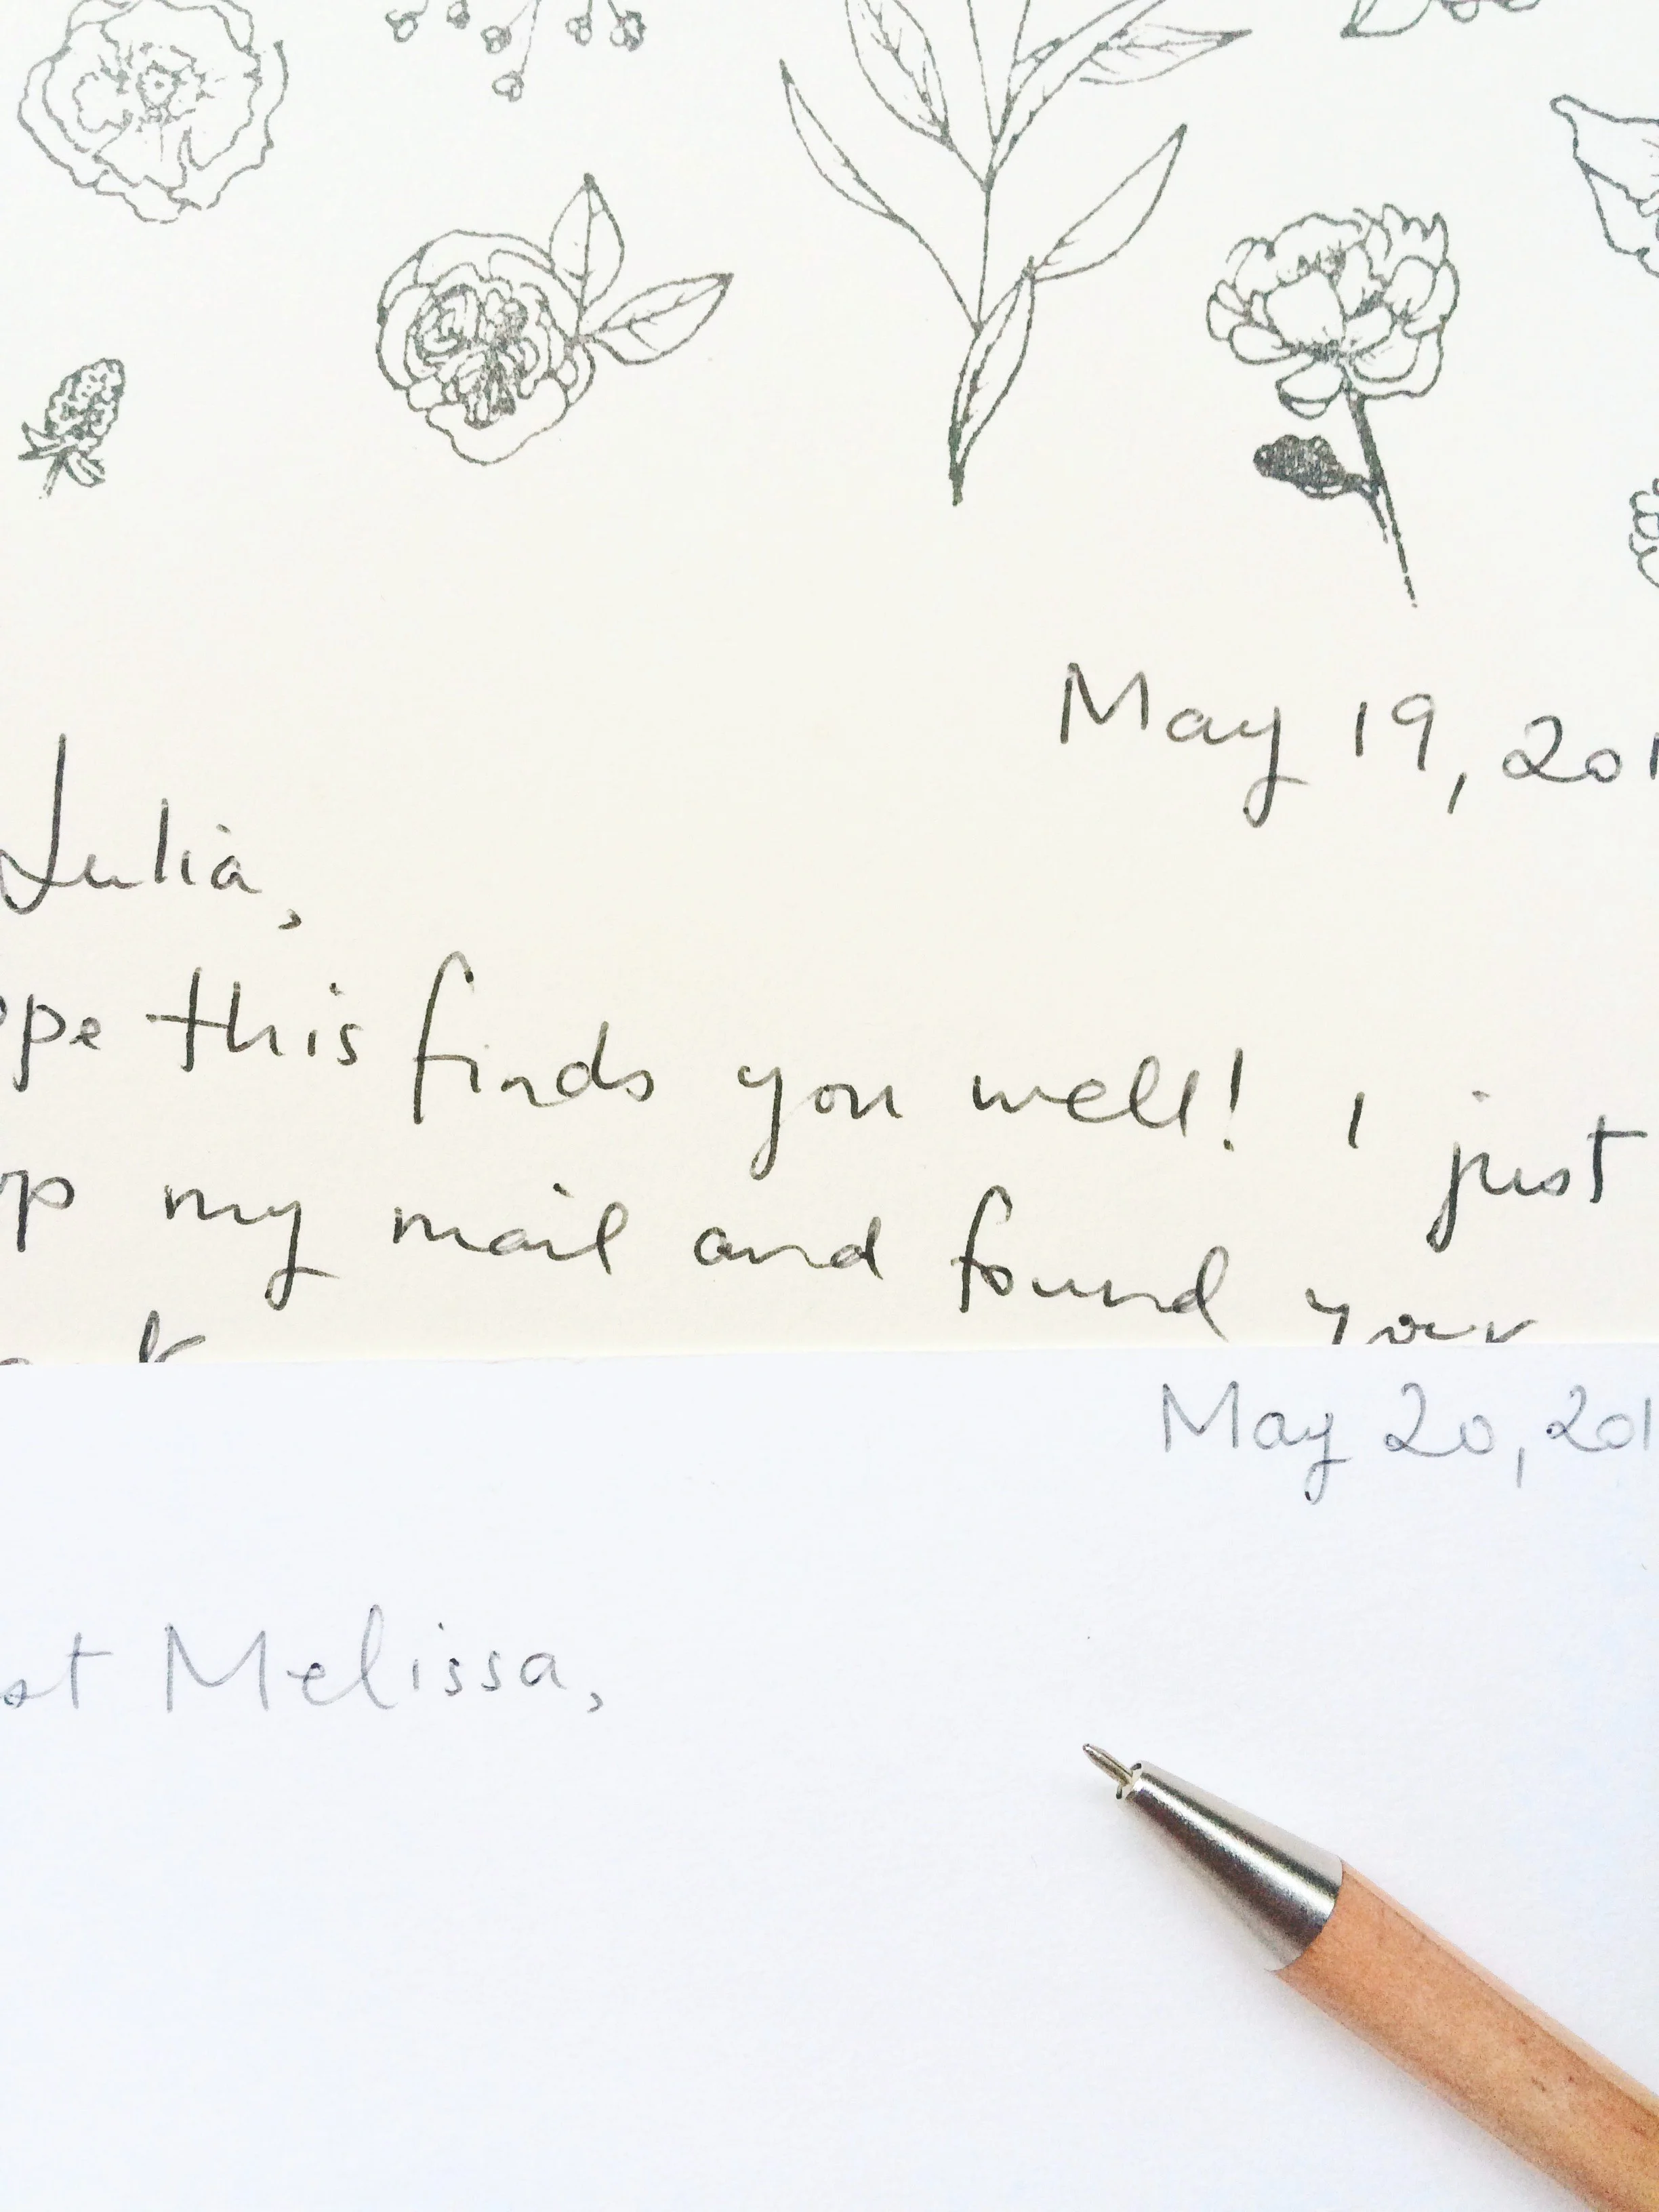 May 19, 201
Julia,
ope this finds you well! I just
op my mail and found your
May 20, 201
st Melissa,